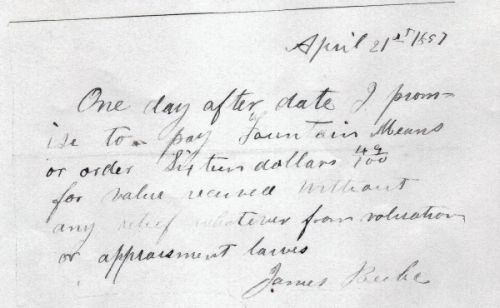 April 21st 1857
One day after date I prom=
ise to pay Fountain Means
or order Sixteen dollars 49/100
for value received without
any relief whatever from valuation
or appraisment laws
James